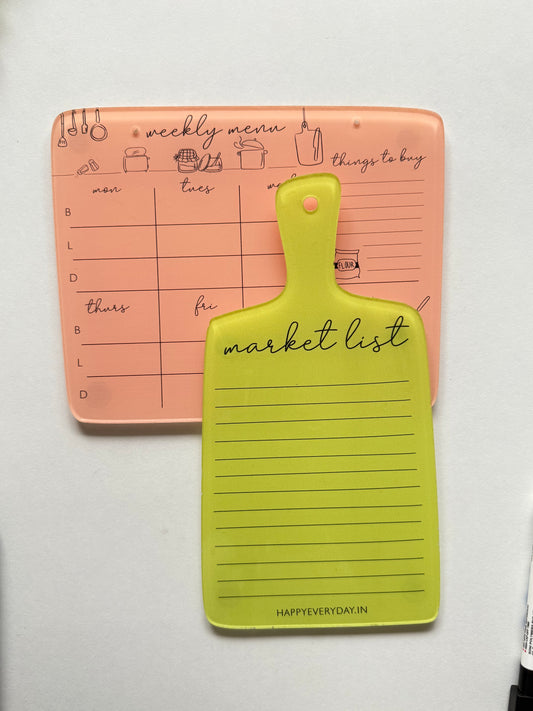 weekly menu
things to buy
mon tues
B
L
D
FLOUR
thurs fri
B
L
D
market list
HAPPYEVERYDAY.IN